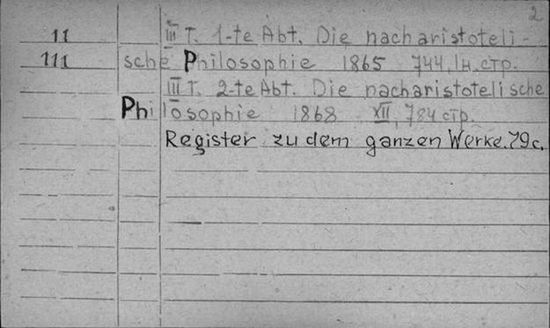 2
11 III T. 1-te Abt. Die nacharistoteli-
111 sche Philosophie 1865 744, 1н. стр.
III T. 2-te Abt. Die nacharistotelische
Philosophie 1868 XII, 784 стр.
Register zu dem ganzen Werke. 79 с.